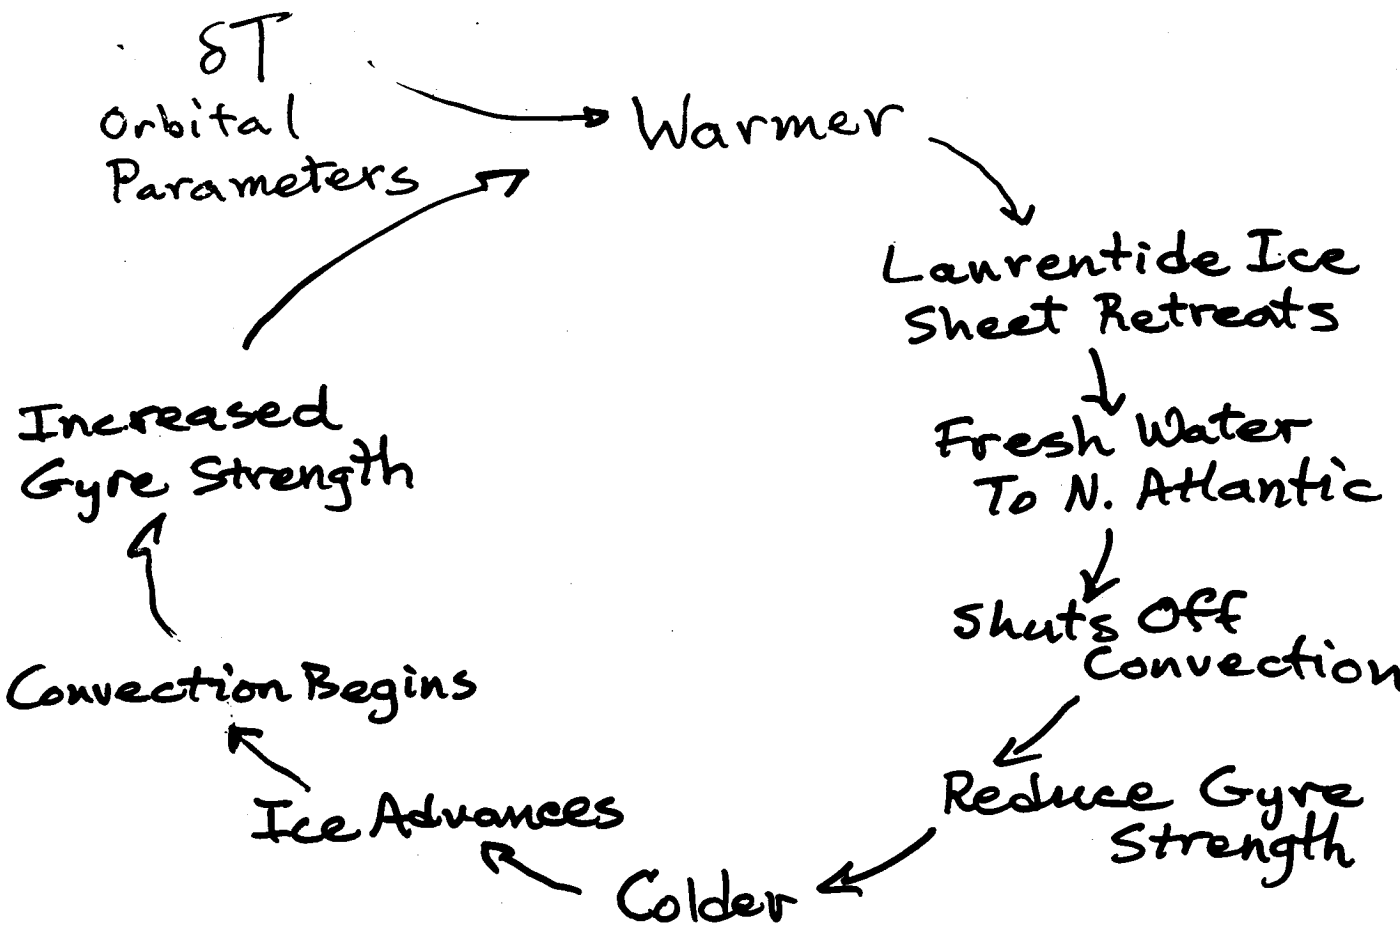 δT
Orbital
Parameters
Warmer
Laurentide Ice
Sheet Retreats
Fresh Water
To N. Atlantic
Shuts Off
Convection
Reduce Gyre
Strength
Colder
Ice Advances
Convection Begins
Increased
Gyre Strength